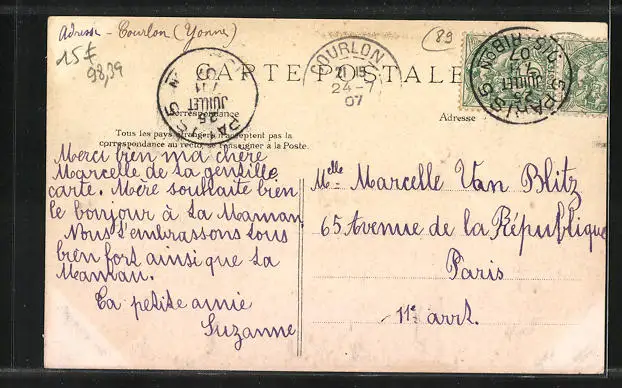 Adresse - Courlon (Yonne)
89
15 F
98,39
CARTE POSTALE
COURLON
24-7
07
PARIS
25
JUILLET
PARIS
JUILLET
07
Correspondance
Adresse
Tous les pays étrangers n'acceptent pas la
correspondance au recto, se renseigner à la Poste.
Merci bien ma chère
Marcelle de ta gentille
carte. Mère souhaite bien
le bonjour à ta Maman
Nous t'embrassons tous
bien fort ainsi que ta
Maman.
Ta petite amie
Suzanne
Melle Marcelle Van Blitz
65 Avenue de la République
Paris
11e arrt.